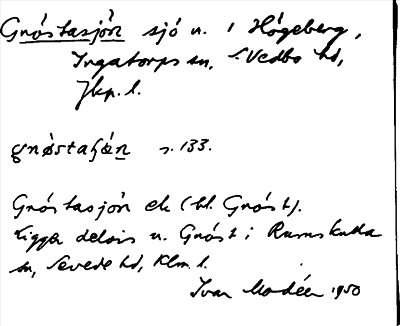 Gnöstasjön sjö n. i Högeberg,
Ingatorps sn, S. Vedbo hd,
Jkp. l.
gnøstaʃøn s. 133.
Gnöstasjön ek (bl. Gnöst).
Ligger delvis u. Gnöst i Rumskulla
sn, Sevede hd, Klm. l.
Ivar Modéer 1950